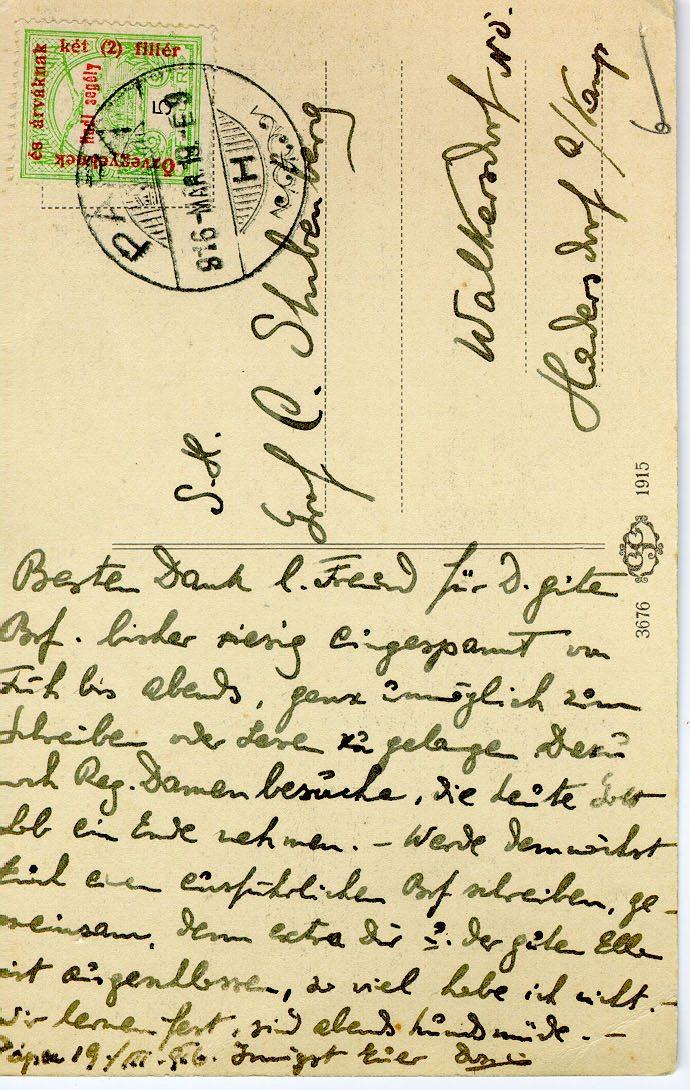 és árváknak
két (2) fillér
Hadi segély
Özvegyeinek
5
PÁPA
916-MAR.19.-E9
H
S.H.
Graf C. Stubenberg
Walkersdorf NÖ.
Hadersdorf a/Kamp
6
3676 1915
Besten Dank l. Freund für D. guten
Brf. bisher riesig eingespannt von
Früh bis abends, ganz unmöglich zum
Schreiben oder Lesen zu gelangen. Dazu
noch Reg. Damenbesuche, die heute Gott
Lob ein Ende nehmen. – Werde demnächst
Euch einen ausführlichen Brf schreiben, ge-
meinsam, denn extra Dir u. der guten Ella
ist ausgeschlossen, so viel habe ich nicht. –
Wir lernen fest, sind abends hundsmüde. –
Pápa 19/III. 916. Innigst Euer